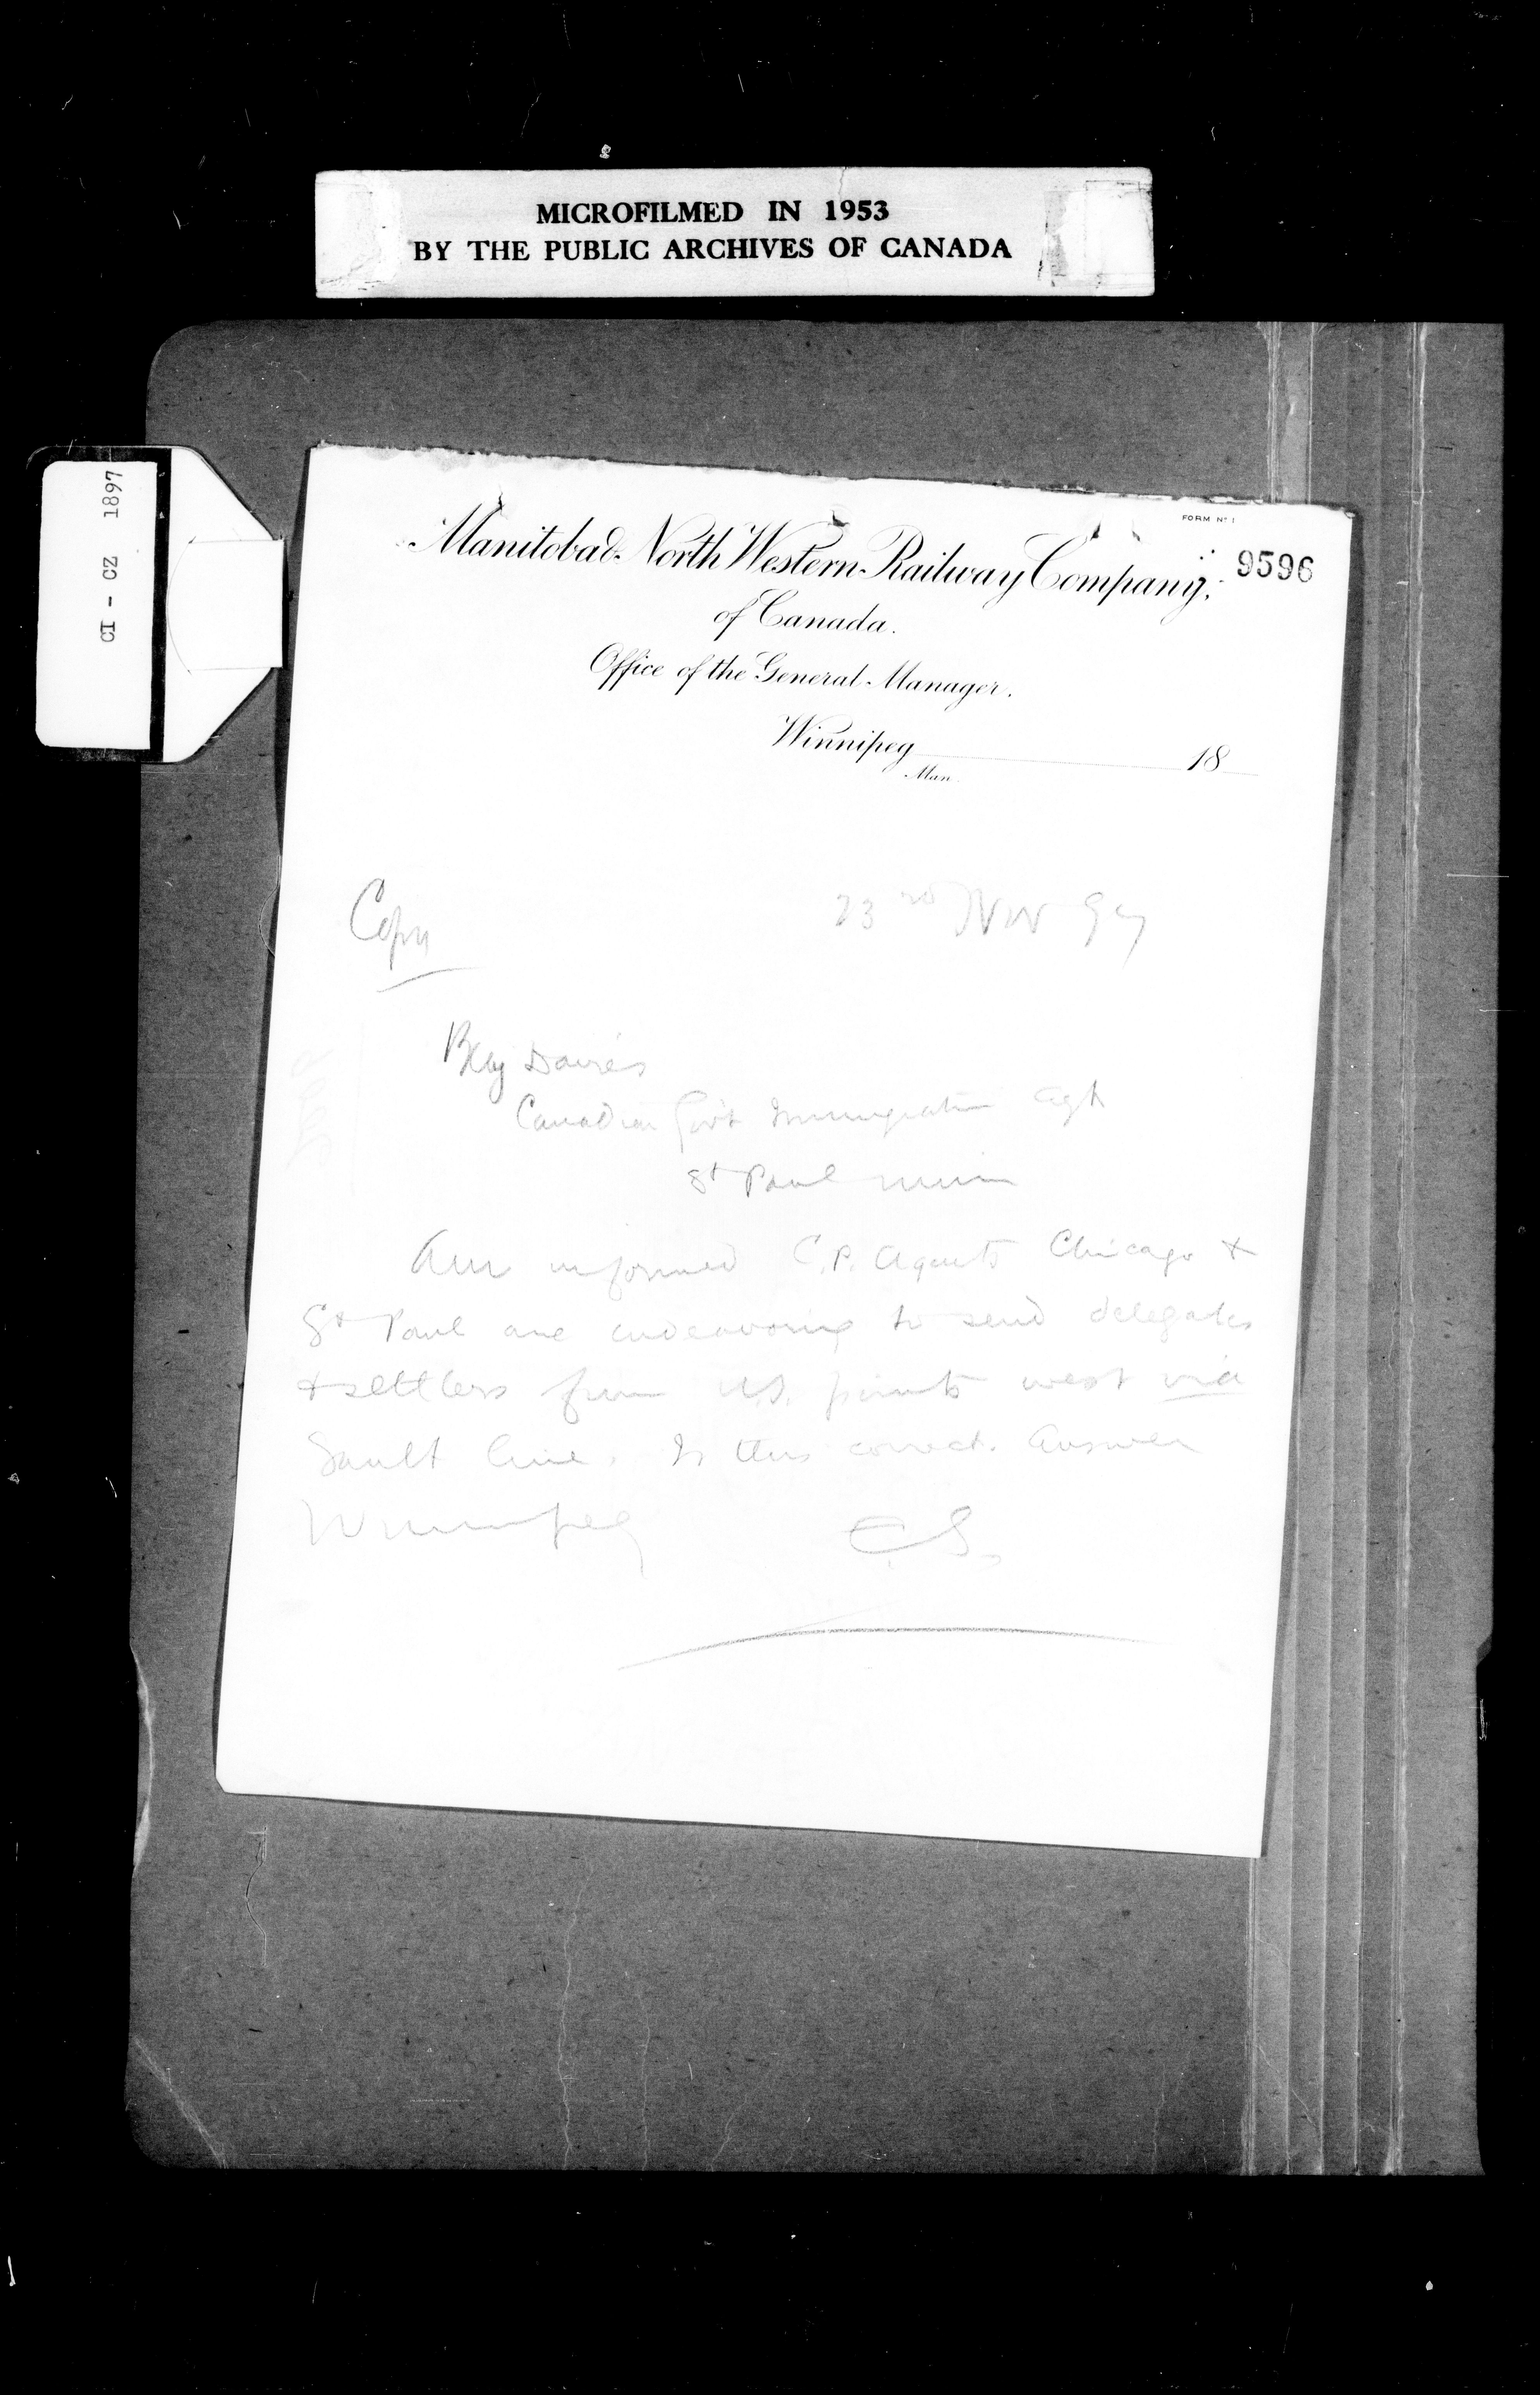 MICROFILMED IN 1953
BY THE PUBLIC ARCHIVES OF CANADA
CI - CZ 1897
FORM No 1
9596
Manitoba & North Western Railway Company,
of Canada.
Office of the General Manager.
Winnipeg 18
Man.
Copy
23rd Nov 97
Benj Davies
Canadian Gov't Immigration Agt
St Paul Minn
Am informed C.P. Agents Chicago &
St Paul are endeavoring to send delegates
& settlers from U.S. points west via
Sault line. Is this correct. Answer
Winnipeg
C.S.